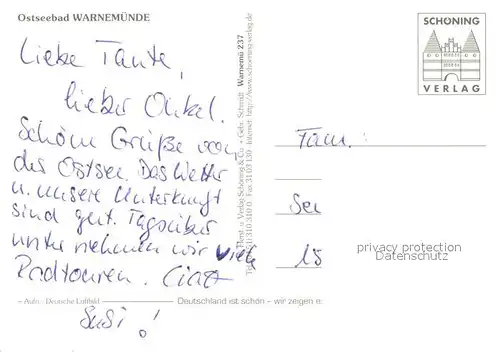 Ostseebad WARNEMÜNDE
Liebe Tante,
lieber Onkel.
Schöne Grüße von
der Ostsee. Das Wetter
u. unsere Unterkunft
sind gut. Tagsüber
unternehmen wir viele
Radtouren. Ciao
Susi!
– Aufn.: Deutsche Luftbild
Deutschland ist schön – wir zeigen e
Verlag Schöning & Co. + Gebr. Schmidt
Warnemü 237
Internet: http://www.schoening-verlag.de
SCHÖNING
VERLAG
Fam.:
privacy protection
Datenschutz